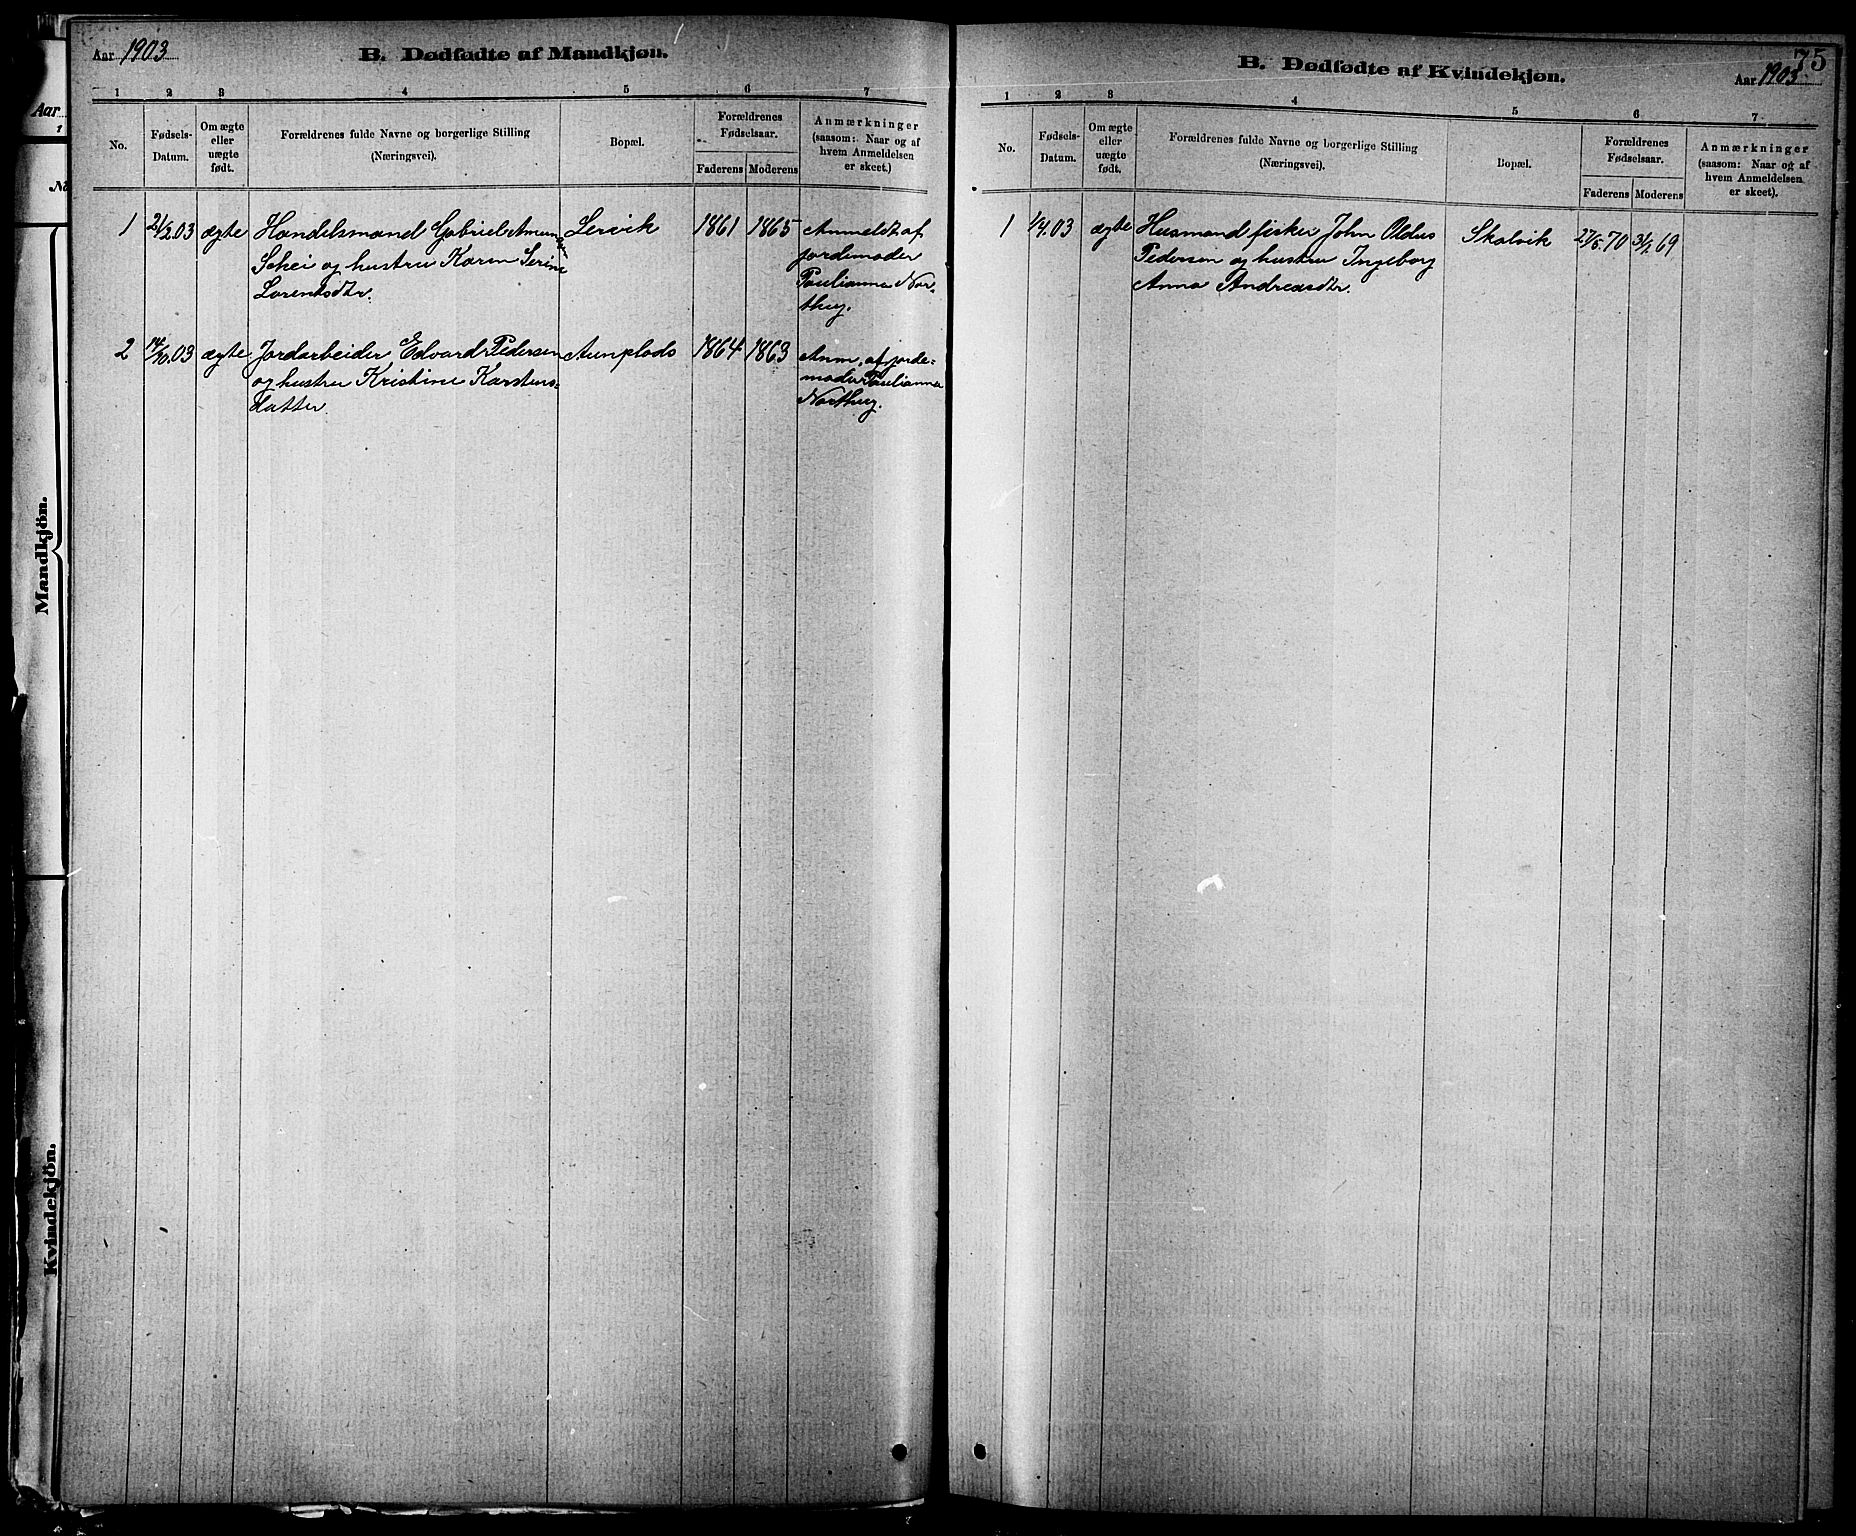 Aar 1903
B. Dødfødte af Mandkjøn.
1 2 3 4 5 6 7
No.
Fødsels-
Datum.
Om ægte
eller
uægte
født.
Forældrenes fulde Navne og borgerlige Stilling
(Næringsvei).
Bopæl.
Forældrenes
Fødselsaar.
Faderens Moderens
Anmærkninger
(saasom: Naar og af
hvem Anmeldelsen
er skeet.)
1 21/2.03 ægte Handelsmand Gabriel Amund Lervik 1861 1865 Anmeldt af
Schei og hustru Karen Serine jordemoder
Lorentsdtr. Paulianna Nor-
thug.
2 14/10.03 ægte Jordarbeider Edvard Pedersen Aunplads 1864 1863 Anm. af jorde-
og hustru Kristine Karstens- moder Paulianna
datter. Northug.
Aar
1
Mandkjön.
Kvindekjön.
75
B. Dødfødte af Kvindekjøn.
Aar 1903
1 2 3 4 5 6 7
No.
Fødsels-
Datum.
Om ægte
eller
uægte
født.
Forældrenes fulde Navne og borgerlige Stilling
(Næringsvei).
Bopæl.
Forældrenes
Fødselsaar.
Faderens Moderens
Anmærkninger
(saasom: Naar og af
hvem Anmeldelsen
er skeet).
1 1/4.03 ægte Husmand fisker John Oldus Skalvik 27/5.70 69
Pedersen og hustru Ingeborg
Anna Andreasdtr.